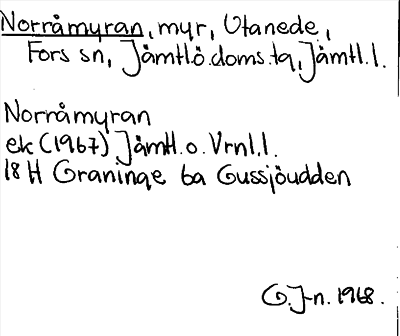 Norråmyran, myr, Utanede,
Fors sn, Jämtlö.doms.tg, Jämtl.l.
Norråmyran
ek (1967) Jämtl.o.Vrnl.l.
18 H Graninge 6a Gussjöudden
G.J-n. 1968.